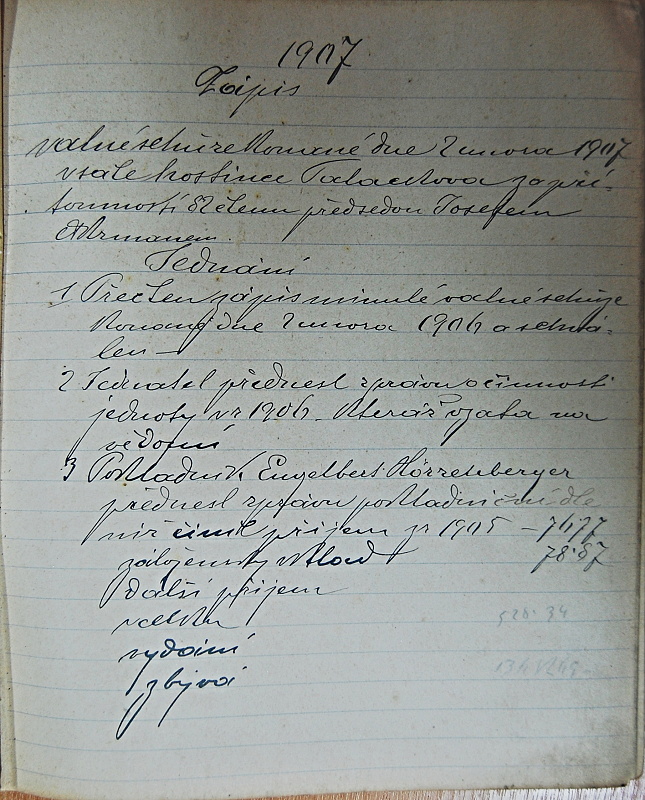 1907
Zápis
valné schůze konané dne 2 unora 1907
v sále hostince Palackova za pří-
tomnosti členu předsedou Josefem
Jednání
1 Přečten zápis minulé valné schůze
konané dne 2 unora 1906 a schvá-
len —
2 Jednatel přednesl zprávu o činnosti
jednoty v r 1906. kteráž vzata na
vědomí
3 Pokladník Engelbert
přednesl zprávu pokladniční dle
níž činil příjem z r 1905 –
založenský vklad 78·87
další příjem
celkem 528·34
vydání
zbývá